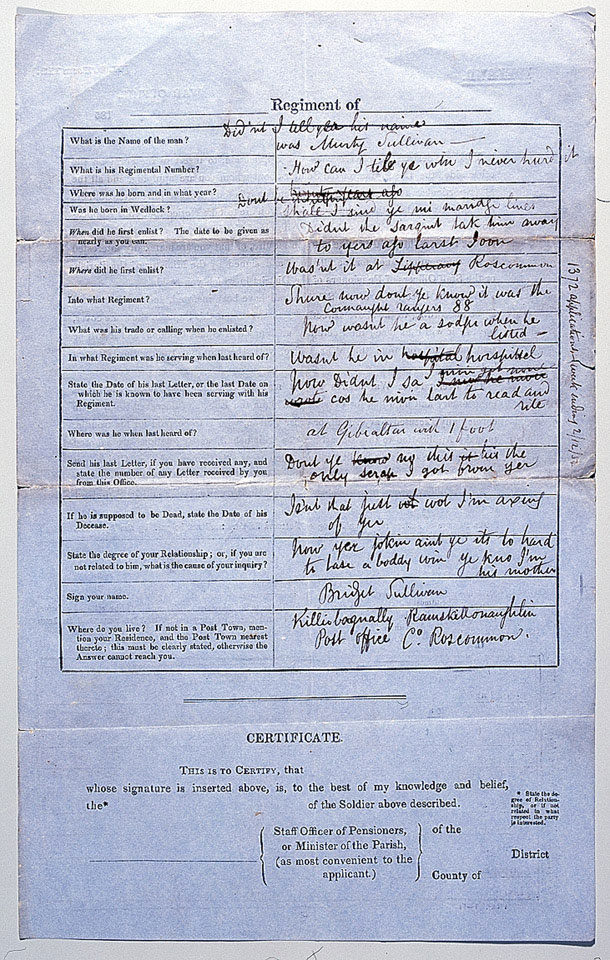 Regiment of
Did'nt I tell yer his name
What is the Name of the man?
was Murty Sullivan —
What is his Regimental Number?
How can I tell ye whn I never hurd it
Where was he born and in what year?
Was he born in Wedlock?
Dont be
shall I sind ye mi marridge lines
When did he first enlist? The date to be given as
nearly as you can.
Didnt the Sargint tak him away
to yers ago larst Joon
Where did he first enlist?
Was'nt it at Tipperary Roscommon
Into what Regiment?
Shure now dont ye know it was the
Connaught rangers 88
What was his trade or calling when he enlisted?
Now wasnt he a sodjur when he
listed —
In what Regiment was he serving when last heard of?
Wasnt he in hospital horspittel
State the Date of his last Letter, or the last Date on
which he is known to have been serving with his
Regiment.
Now Didnt I sa I
wrote cos he mon lart to read and
rite
Where was he when last heard of?
at Gibraltar with 1 foot
Send his last Letter, if you have received any, and
state the number of any Letter received by you
from this Office.
Dont ye know my this it his the
only scrap I got from yer
If he is supposed to be Dead, state the Date of his
Decease.
Isnt that just wot I'm axing
of yer
State the degree of your Relationship; or, if you are
not related to him, what is the cause of your inquiry?
Now yer jokin aint ye its to hard
to tase a boddy win ye kno I'm
his mother
Sign your name.
Bridget Sullivan
Where do you live? If not in a Post Town, men-
tion your Residence, and the Post Town nearest
thereto; this must be clearly stated, otherwise the
Answer cannot reach you.
Post office Co. Roscommon.
1372 applications week ending 2/12/
CERTIFICATE.
THIS IS TO CERTIFY, that
whose signature is inserted above, is, to the best of my knowledge and belief,
the* of the Soldier above described.
* State the de-
gree of Relation-
ship, or if not
related in what
respect the party
is interested.
Staff Officer of Pensioners,
or Minister of the Parish,
(as most convenient to the
applicant.)
of the
District
County of